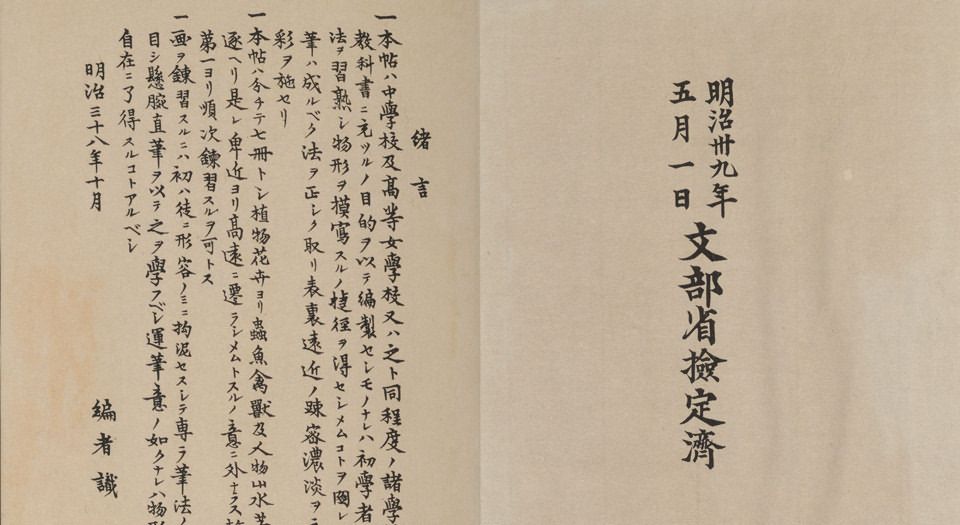 明治卅九年
五月一日
文部省檢定濟
緒言
一本帖ハ中學校及高等女學校又ハ之ト同程度ノ諸學
教科書ニ充ツルノ目的ヲ以テ編製セシモノナレハ初學者
法ヲ習熟シ物形ヲ模寫スルノ捷徑ヲ得セシメムコトヲ圖レ
筆ハ成ルベク法ヲ正シク取リ表裏遠近ノ疎密濃淡ヲ
彩ヲ施セリ
一本帖ハ分チテ七冊トシ植物花卉ヨリ蟲魚禽獸及人物山水
逐ヘリ是レ卑近ヨリ高遠ニ遷ラシメムトスルノ意ニ外ナラス
第一ヨリ順次鍊習スルヲ可トス
一画ヲ鍊習スルニハ初ハ徒ニ形容ノミニ拘泥セスシテ専ラ筆法ノ
目シ懸腕直筆ヲ以テ之ヲ學フベシ運筆意ノ如クナレハ物形
自在ニ了得スルコトアルベシ
明治三十八年十月
編者識